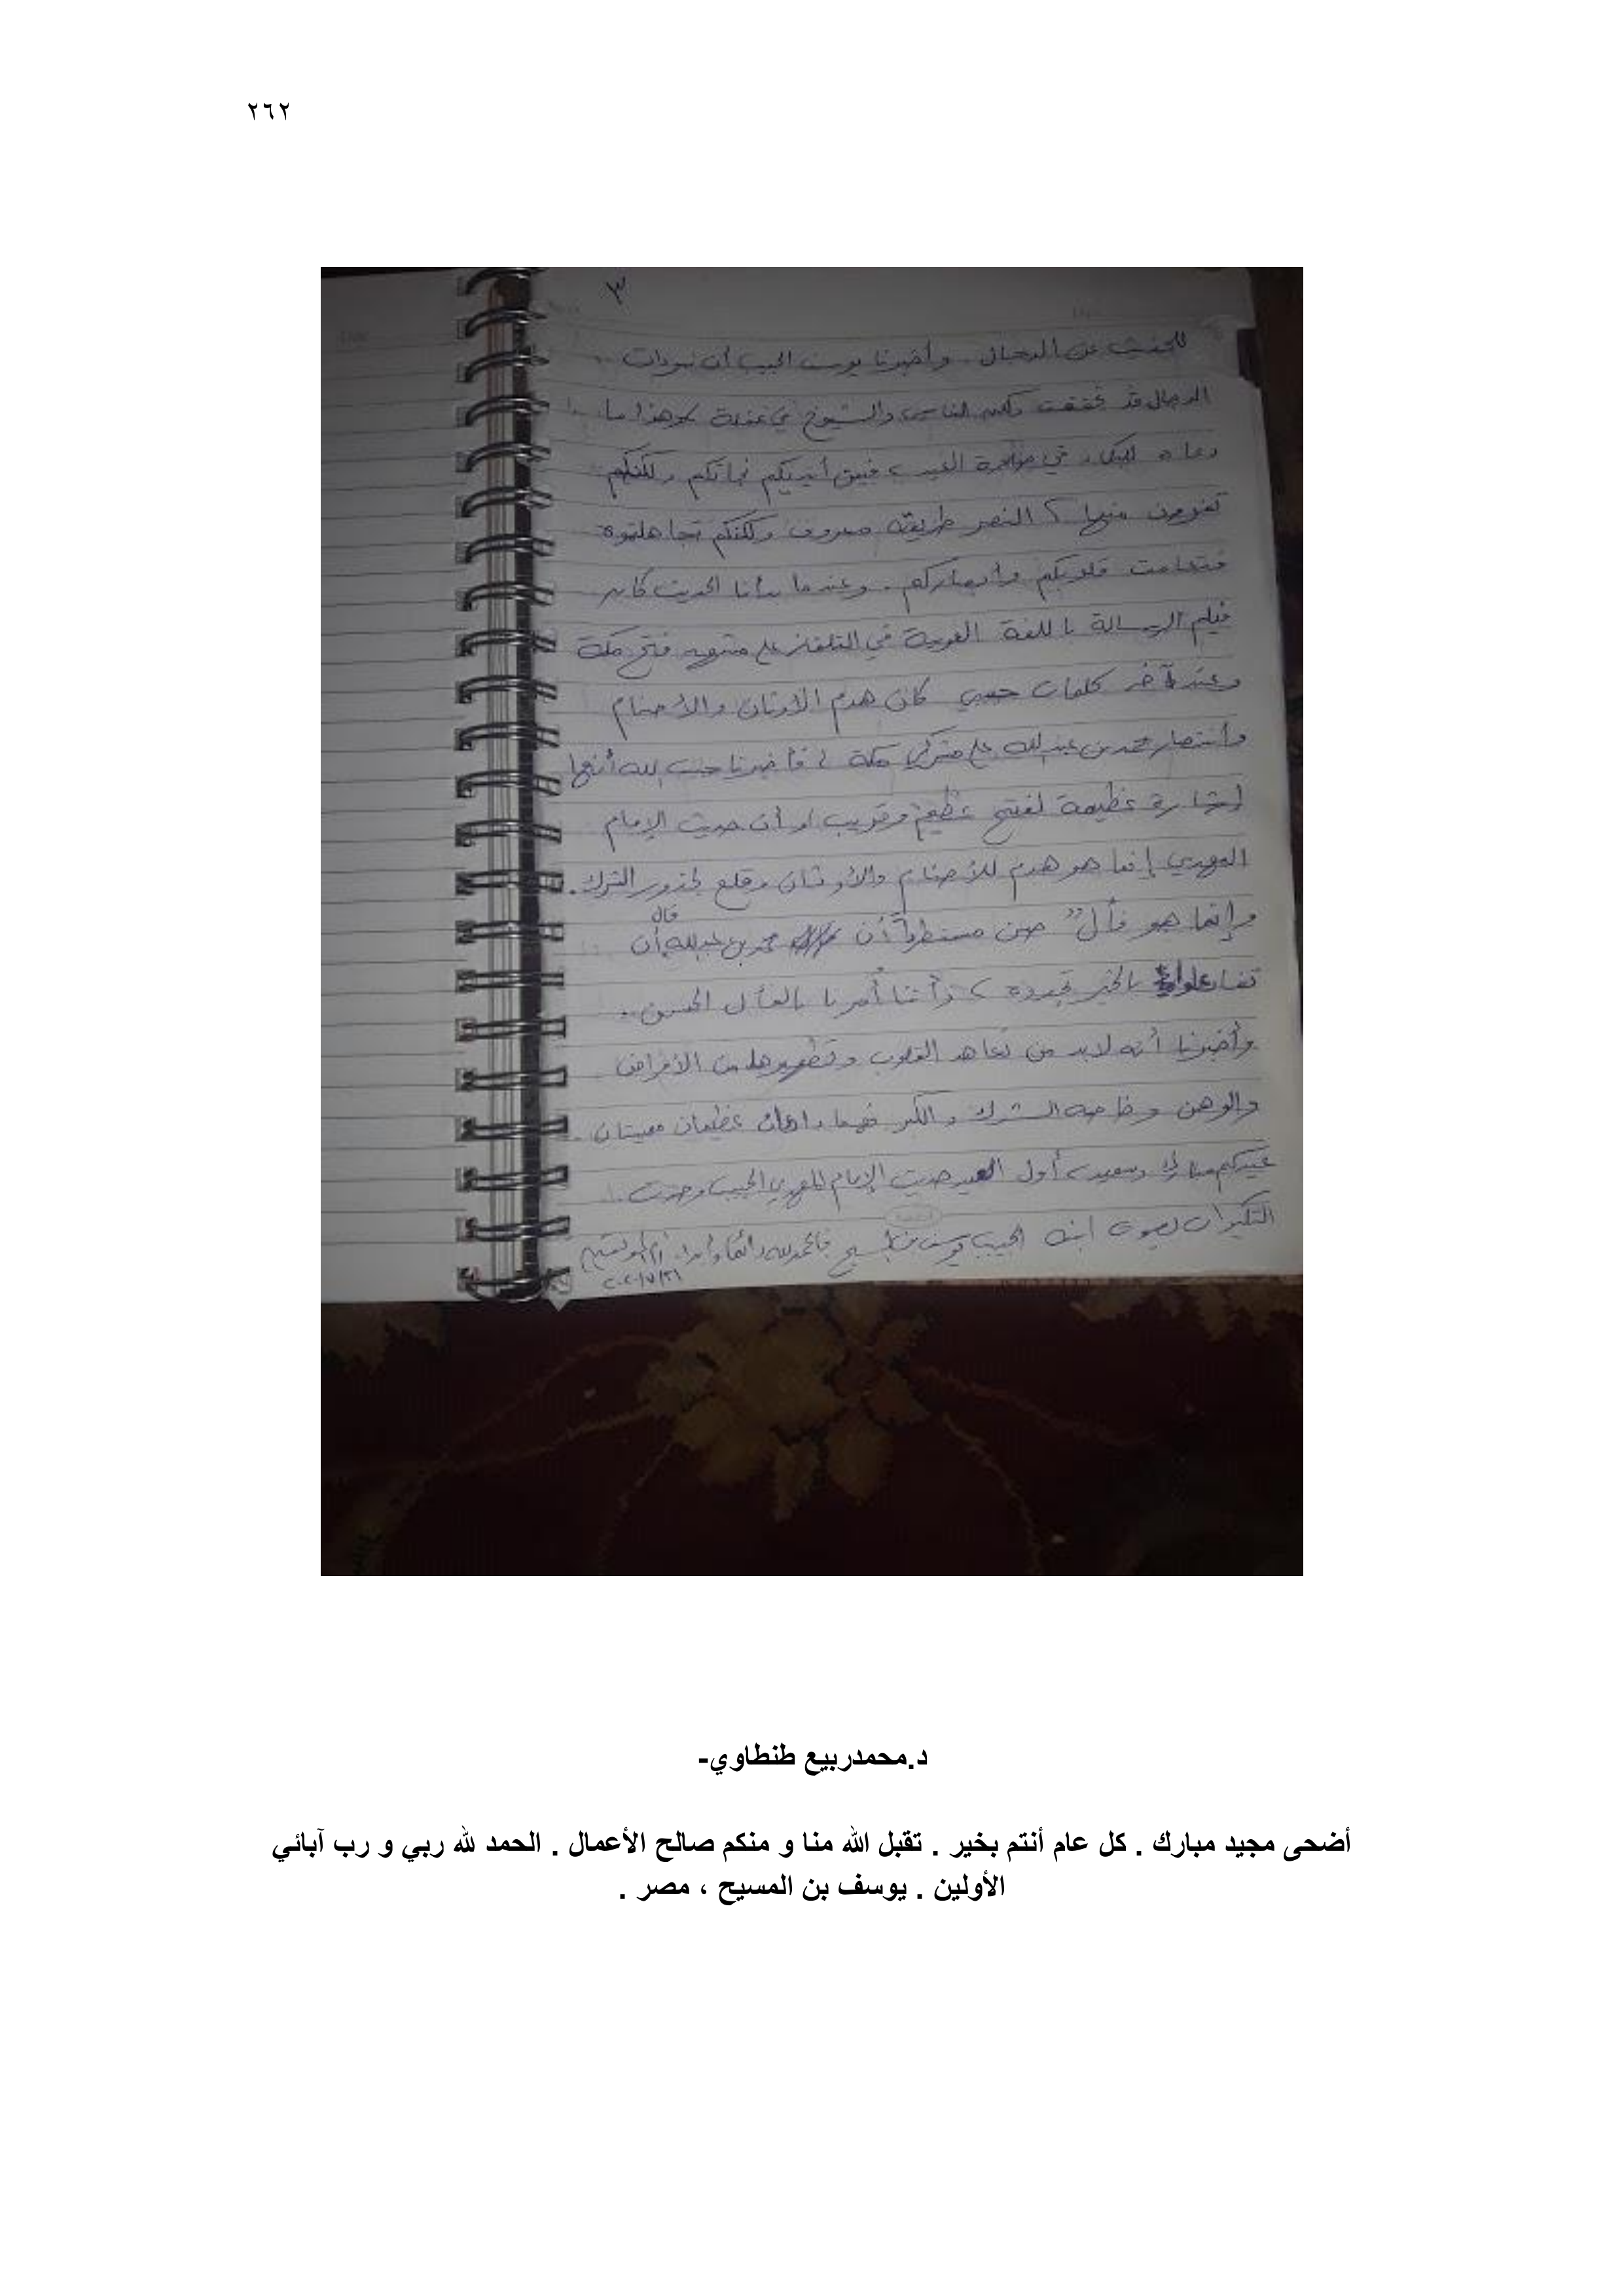 ٢٦٢
٣
للحديث عن الدجال . وأخبرنا يوسف الحبيب أن نبوءات
الدجال قد تحققت ولكن الناس والشيوخ في غفلة وهذا ما
دعاه للبكاء في الغيب فبين أيديكم نجاتكم ولكنكم
تفرون منها ؟ النصر طريقه معروف ولكنكم تجاهلتموه
فتعامت قلوبكم وأبصاركم . وعندما بدأنا الحديث كان
فيلم الرسالة باللغة العربية في التلفاز على مشهد فتح مكة
وعند آخر كلمات حبيبي كان هدم الأوثان والأصنام
وانتصار محمد بن عبد الله على مشركي مكة فأخبرنا حبيب الله أنها
إشارة عظيمة لفتح عظيم وقريب أو أن حديث الإمام
المهدي إنما هو هدم للأصنام والأوثان وقلع لجذور الشرك .
وإنما هو فأل حسن مستطرداً أن محمد بن عبد الله قال أن
تفاءلوا بالخير تجدوه ، وأننا أمرنا بالفأل الحسن .
وأخبرنا أنه لابد من تعاهد القلوب وتطهيرها من الأمراض
والوهن وخاصة الشرك والكبر فهما داءان عظيمان مميتان .
عيدكم مبارك وسعيد ، أول العيد حديث الإمام المهدي الحبيب وحدث
التكبيرات بصوت ابنه الحبيب يوسف بن المسيح فالحمد لله دائماً وأبداً
٢٠٢٠/٧/٣١
د.محمدربيع طنطاوي-
أضحى مجيد مبارك . كل عام أنتم بخير . تقبل الله منا و منكم صالح الأعمال . الحمد لله ربي و رب آبائي
الأولين . يوسف بن المسيح ، مصر .